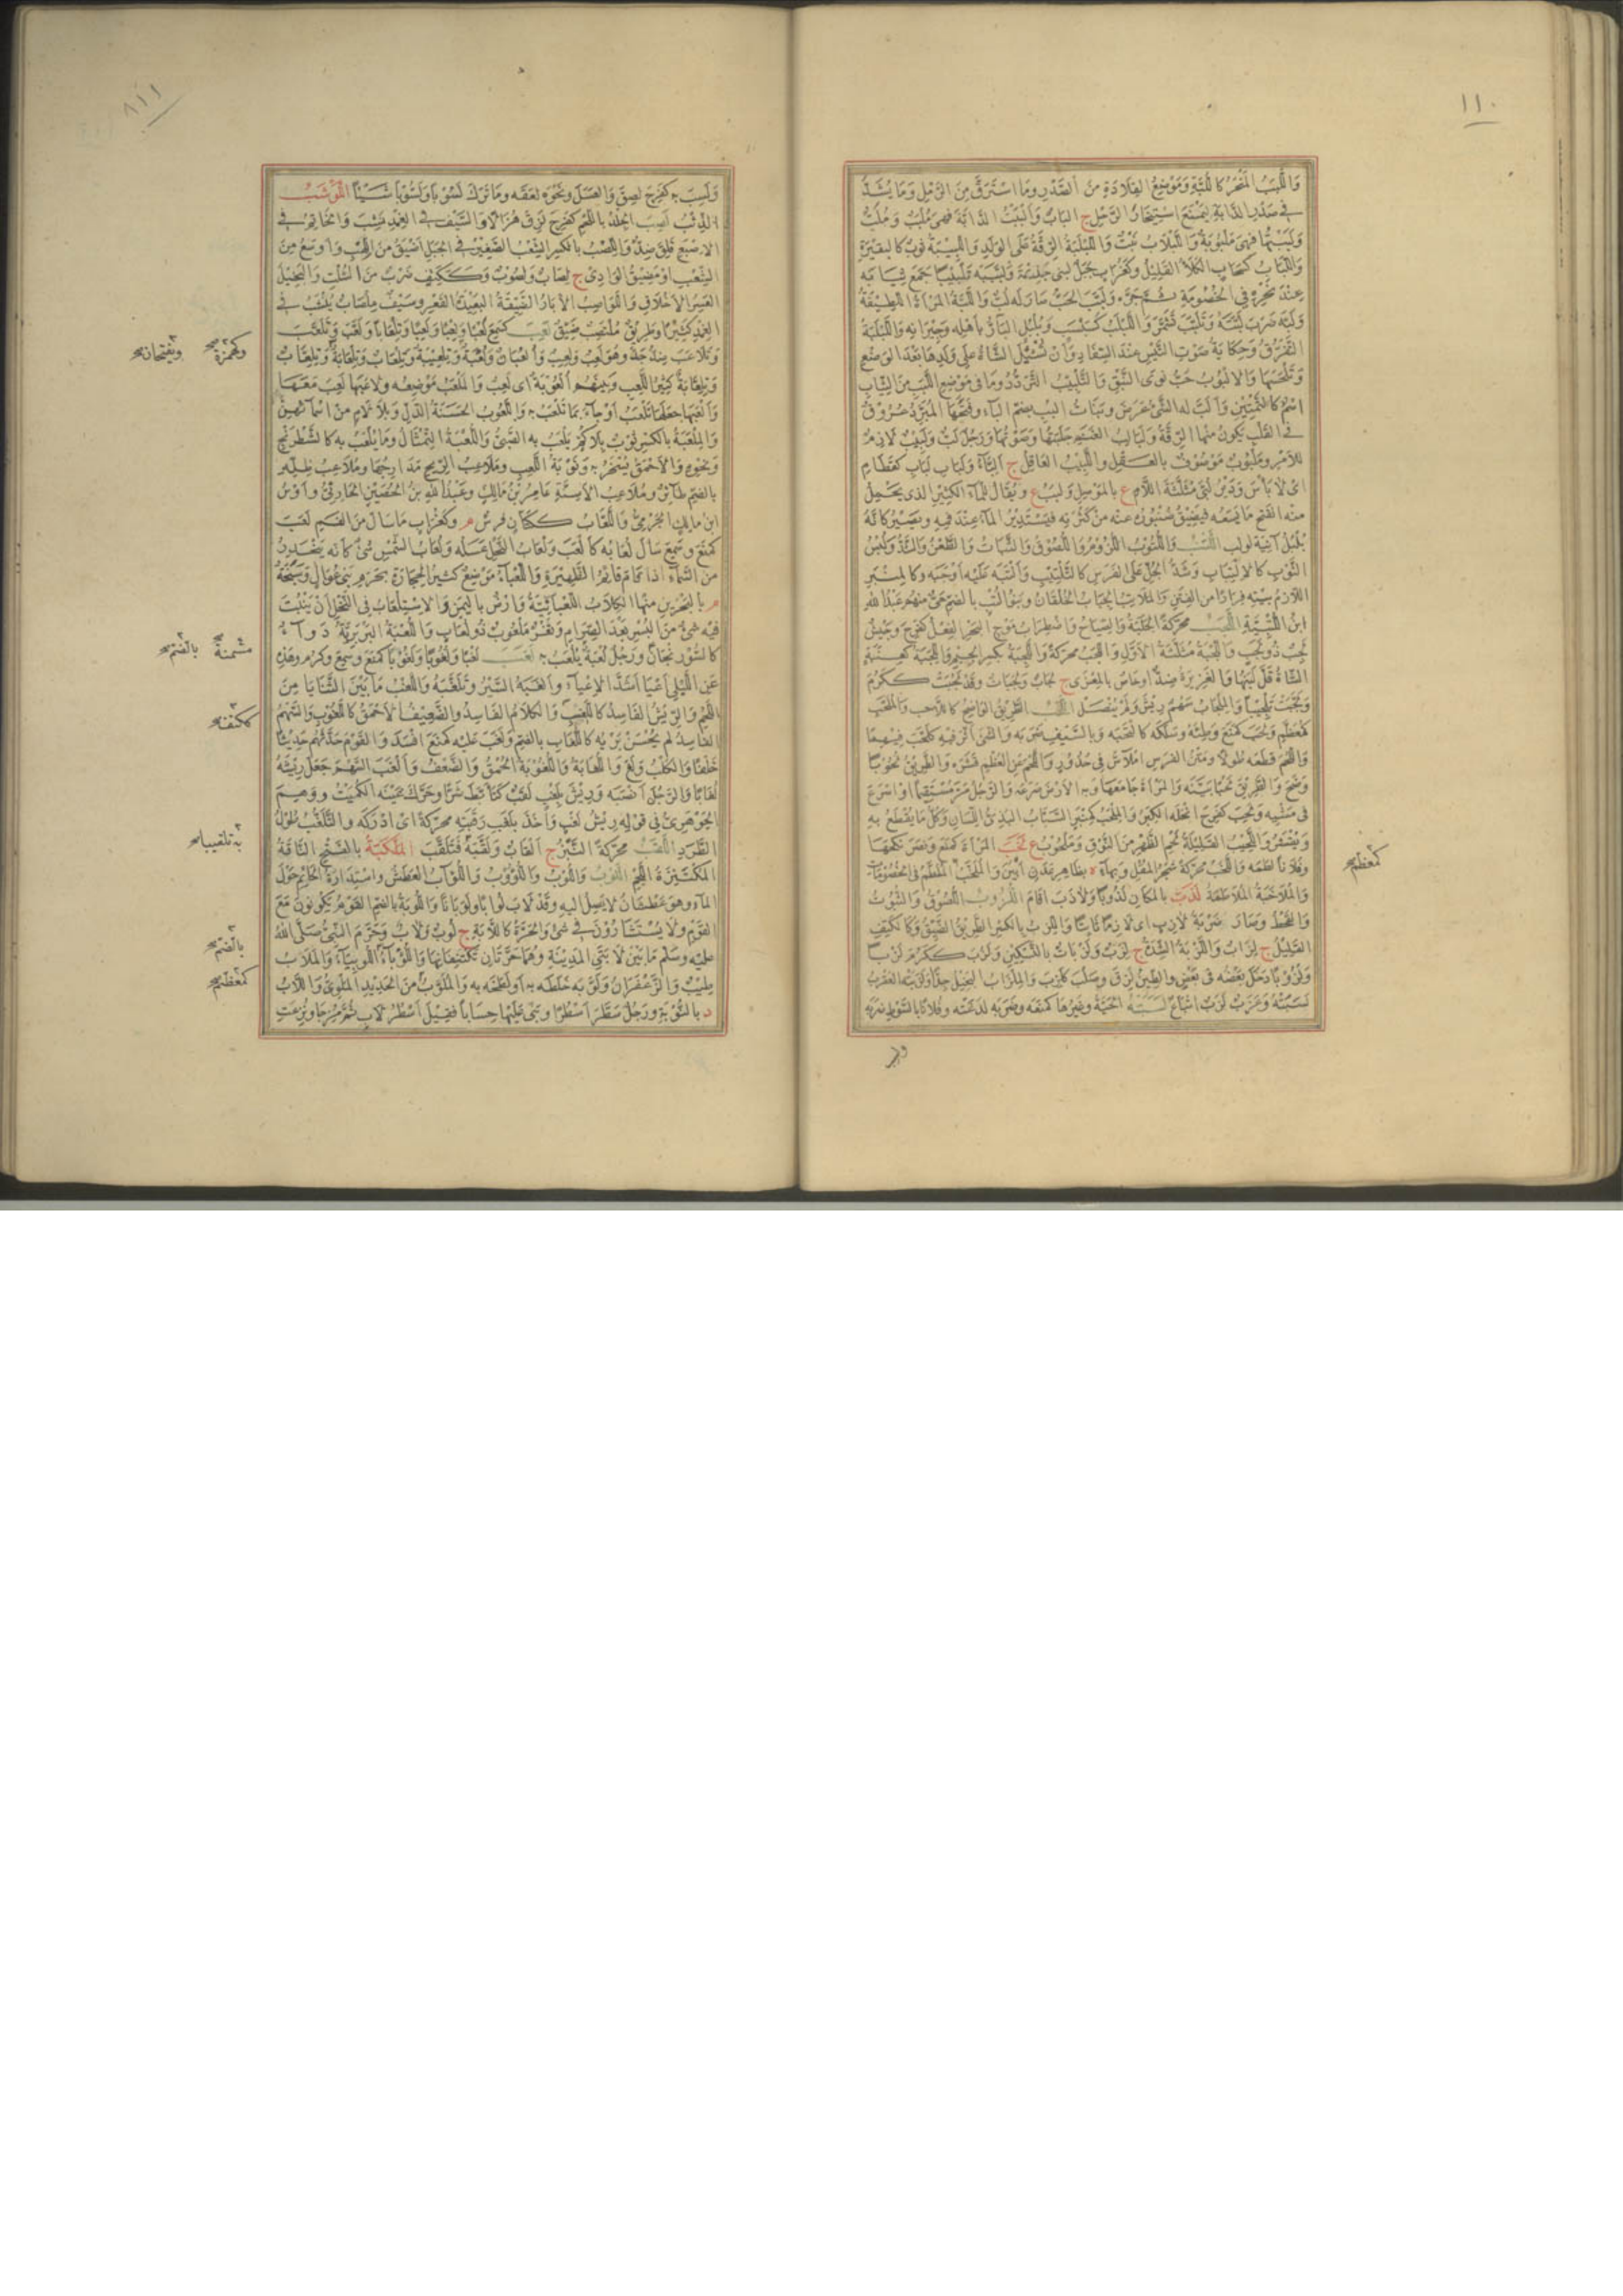 ١١٠
واللبب المنحر كاللبة وموضع القلادة من الصدر وما استرق من الرمل وما يشد
في صدر الدابة ليمنع استئخار الرحل ج الباب والببت الدابة فهي ملبب وملب
ولببتها فهي ملبوبة واللبلاب نبت واللبلبة الرقة على الولد والبيبة ثوب كالبقيرة
واللباب كسحاب الكلأ القليل وكغراب جبل لبني جذيمة ولببه تلبيبا جمع ثيابه
عند نحره في الخصومة ثم جره ولبب الحب صار له لب واللبة المرأة اللطيفة
ولبه ضرب لبته وتلبب تشمر واللبلب كسبسب وبلبل البار بأهله وجيرانه واللبلبة
التفرق وحكاية صوت التيس عند السفاد وأن تشبل الشاة على ولدها بعد الوضع
وتلحسها والالبوب حب نوى النبق والتلبيب التردد وما في موضع اللبب من الثياب
اسم كالتمتين وألب له الشئ عرض وبنات البب بضم الباء وفتحها المبرد عروق
في القلب يكون منها الرقة ولبالب الغنم جلبتها وصوتها ورجل لب ولبيب لازم
للأمر وملبوب موصوف بالعقل واللبيب العاقل ج ألباء ولباب لباب كقطام
أي لا بأس ودير لبى مثلثة اللام ع بالموصل ولبب ع ويقال للماء الكثير الذي يحمل
منه الفتح ما يسعه فيضيق صنبوره عنه من كثرته فيستدير الماء عند فيه ويصير كأنه
بلبل آنية لولب اللتب واللتوب اللزوم واللصوق والثبات والطعن والشد ولبس
الثوب كالالتتاب وشد الجل على الفرس كالتلتيب وألتبه عليه أوجبه وكالمنبر
اللازم بيته فرارا من الفتن والملاتب الجباب الخلقان وبنو لتب بالضم حي منهم عبد الله
ابن اللتبية اللجب محركة الجلبة والصياح واضطراب موج البحر الفعل كفرح وجيش
لجب ذو لجب واللجبة مثلثة الأول واللجبة محركة واللجبة بكسر الجيم واللجبة كعنبة
الشاة قل لبنها والغزيرة ضد أو خاص بالمعزى ج لجاب ولجبات وقد لجبت ككرم
ولجبت تلجيبا والملجاب سهم ريش ولم ينصل اللحب الطريق الواضح كاللاحب والملحب
كمعظم ولحب كمنع وطئه وسلكه كالتحبه وبالسيف ضربه والشئ أثر فيه كلحب فيهما
واللحم قطعه طولا ومتن الفرس املاس في حدور واللحم عن العظم قشره والطريق لحوبا
وضح والطريق لحبا بينه والمرأة جامعها وبه الأرض صرعه والرجل مر مستقيما أو أسرع
في مشيه ولحب كفرح أنحله الكبر والملحب كمنبر السباب البذئ اللسان وكل ما يقطع به
ويقشر واللحيب القليلة لحم الظهر من النوق وملحوب ع لخب المرأة كمنع ونصر نكحها
وفلانا لطمه واللخب محركة شجر المقل وبهاء ة بظاهر عدن أبين والملخب الملطم في الخصومات
والملاخبة الملاطمة لذب بالمكان لذوبا ولاذب أقام اللزوب اللصوق والثبوت
والقحط وصار ضربة لازب أي لازما ثابتا واللزب بالكسر الطريق الضيق وككتف
القليل ج لزاب واللزبة الشدة ج لزب ولزبات بالتسكين ولزب ككرم لزبا
ولزوبا دخل بعضه في بعض والطين لزق وصلب كلزب والملزاب البخيل جدا ولزبته العقرب
لسبته وعزب لزب اتباع لسبته الحية وغيرها كمنعه وضربه لدغته وفلانا بالسوط ضربه
كمعظم صح
ولسب
١١١
ولسب به كفرح لصق والعسل ونحوه لعقه وما ترك لسوبا ولسوبا شيئا اللوشب
الذئب لصب الجلد باللحم كفرح لزق هزالا والسيف في الغمد نشب والخاتم في
الاصبع قلق ضد واللصب بالكسر الشعب الصغير في الجبل أضيق من اللهب وأوسع من
الشعب أو مضيق الوادي ج لصاب ولصوب وككتف ضرب من السلت والبخيل
العسر الأخلاق واللواصب الأبار الضيقة البعيدة القعر وسيف ملصاب ينشب في
الغمد كثيرا وطريق ملتصب ضيق لعب كسمع لعبا ولعبا ولعبا وتلعابا ولعب وتلعب
وتلاعب ضد جد وهو لعب ولعب وألعبان ولعبة وتلعيبة وتلعاب وتلعابة وتلعاب
وتلعابة كثير اللعب وبينهم ألعوبة أي لعب والملعب موضعه ولاعبها لعب معها
وألعبها جعلها تلعب أو جاءها بما تلعب به واللعوب الحسنة الدل وبلا لام من أسمائهن
والملعبة بالكسر ثوب بلا كم يلعب به الصبي واللعبة التمثال وما يلعب به كالشطرنج
ونحوه والأحمق يسخر به ونوبة اللعب وملاعب الريح مدارجها وملاعب ظله
بالضم طائر وملاعب الأسنة عامر بن مالك وعبد الله بن الحصين الحارثي وأوس
ابن مالك الجرمي واللعاب ككتان فرس م وكغراب ما سال من الفم لعب
كمنع وسمع سال لعابه كألعب ولعاب النحل عسله ولعاب الشمس شئ كأنه ينحدر
من السماء إذا قام قائم الظهيرة واللعباء موضع كثير الحجارة بحزم بني عوال وسبخة
م بالبحرين منها الكلاب اللعبائية وأرض باليمن والاستلعاب في النخل أن ينبت
فيه شئ من البسر بعد الصرام وثغر ملعوب ذو لعاب واللعبة البربرية دواء
كالسورنجان ورجل لعبة يلعب به لغب لغبا ولغوبا ولغوبا كمنع وسمع وكرم وهذه
عن اللبلي أعيا أشد الاعياء وألغبه السير وتلغبه واللغب ما بين الثنايا من
اللحم والريش الفاسد كاللغب والكلام الفاسد والضعيف الأحمق كاللغوب والسهم
الفاسد لم يحسن بريه كاللغاب بالضم ولغب عليه كمنع أفسد والقوم حدثهم حديثا
خلفا والكلب ولغ واللغابة واللغوبة الحمق والضعف وألغب السهم جعل ريشه
لغابا والرجل أنصبه وريش بلغب لقب كتأبط شرا وحرك غينه الكميت ووهم
الجوهري في قوله ريش لغب وأخذ بلغب رقبته محركة أي أدركه والتلغب طول
الطرد اللقب محركة النبز ج ألقاب ولقبه فتلقب الملكبة بالفتح الناقة
المكتنزة اللحم اللوب واللوب واللؤوب واللواب العطش واستدارة الحائم حول
الماء وهو عطشان لا يصل إليه وقد لاب لوبا ولوبانا واللوبة بالضم القوم يكونون مع
القوم ولا يستشارون في شئ والحرة كاللابة ج لوب ولاب وحرم النبي صلى الله
عليه وسلم ما بين لابتي المدينة وهما حرتان تكتنفانها واللوباء اللوبياء والملاب
طيب والزعفران ولوبه خلطه به أو لطخه به والملوب من الحديد الملوي واللاب
د بالنوبة ورجل سطر أسطرا وبنى عليها حسابا فقيل أسطر لاب ثم مزجا ونزعت
وكهمزة صح ويفتحان صح
مثمنة بالضم صح
ككتف صح
به تلقيبا صح
بالضم صح
كمعظم صح